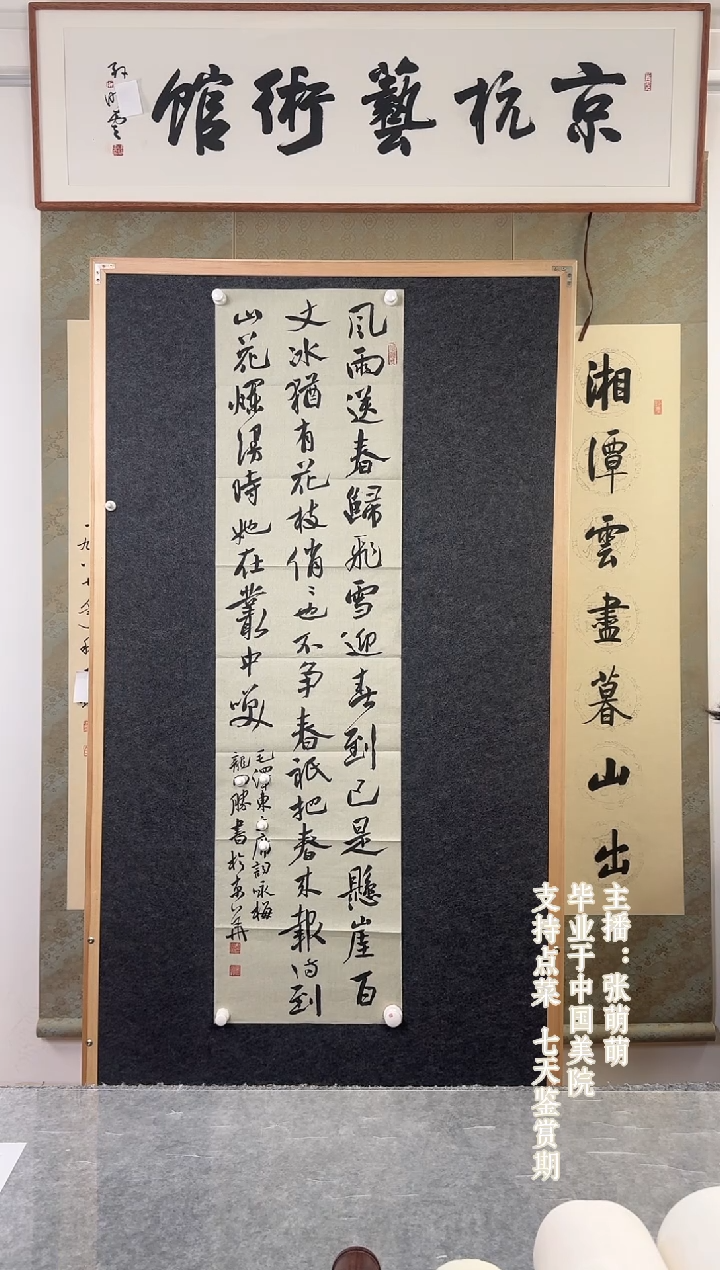 京杭藝術馆
風雨送春歸飛雪迎春到已是懸崖百
丈冰猶有花枝俏〻也不争春祇把春来報待到
山花爛漫時她在叢中笑
毛澤東主席詞咏梅
龍四勝書於
湘潭雲盡暮山出
主播：张萌萌
毕业于中国美院
支持点菜 七天鉴赏期